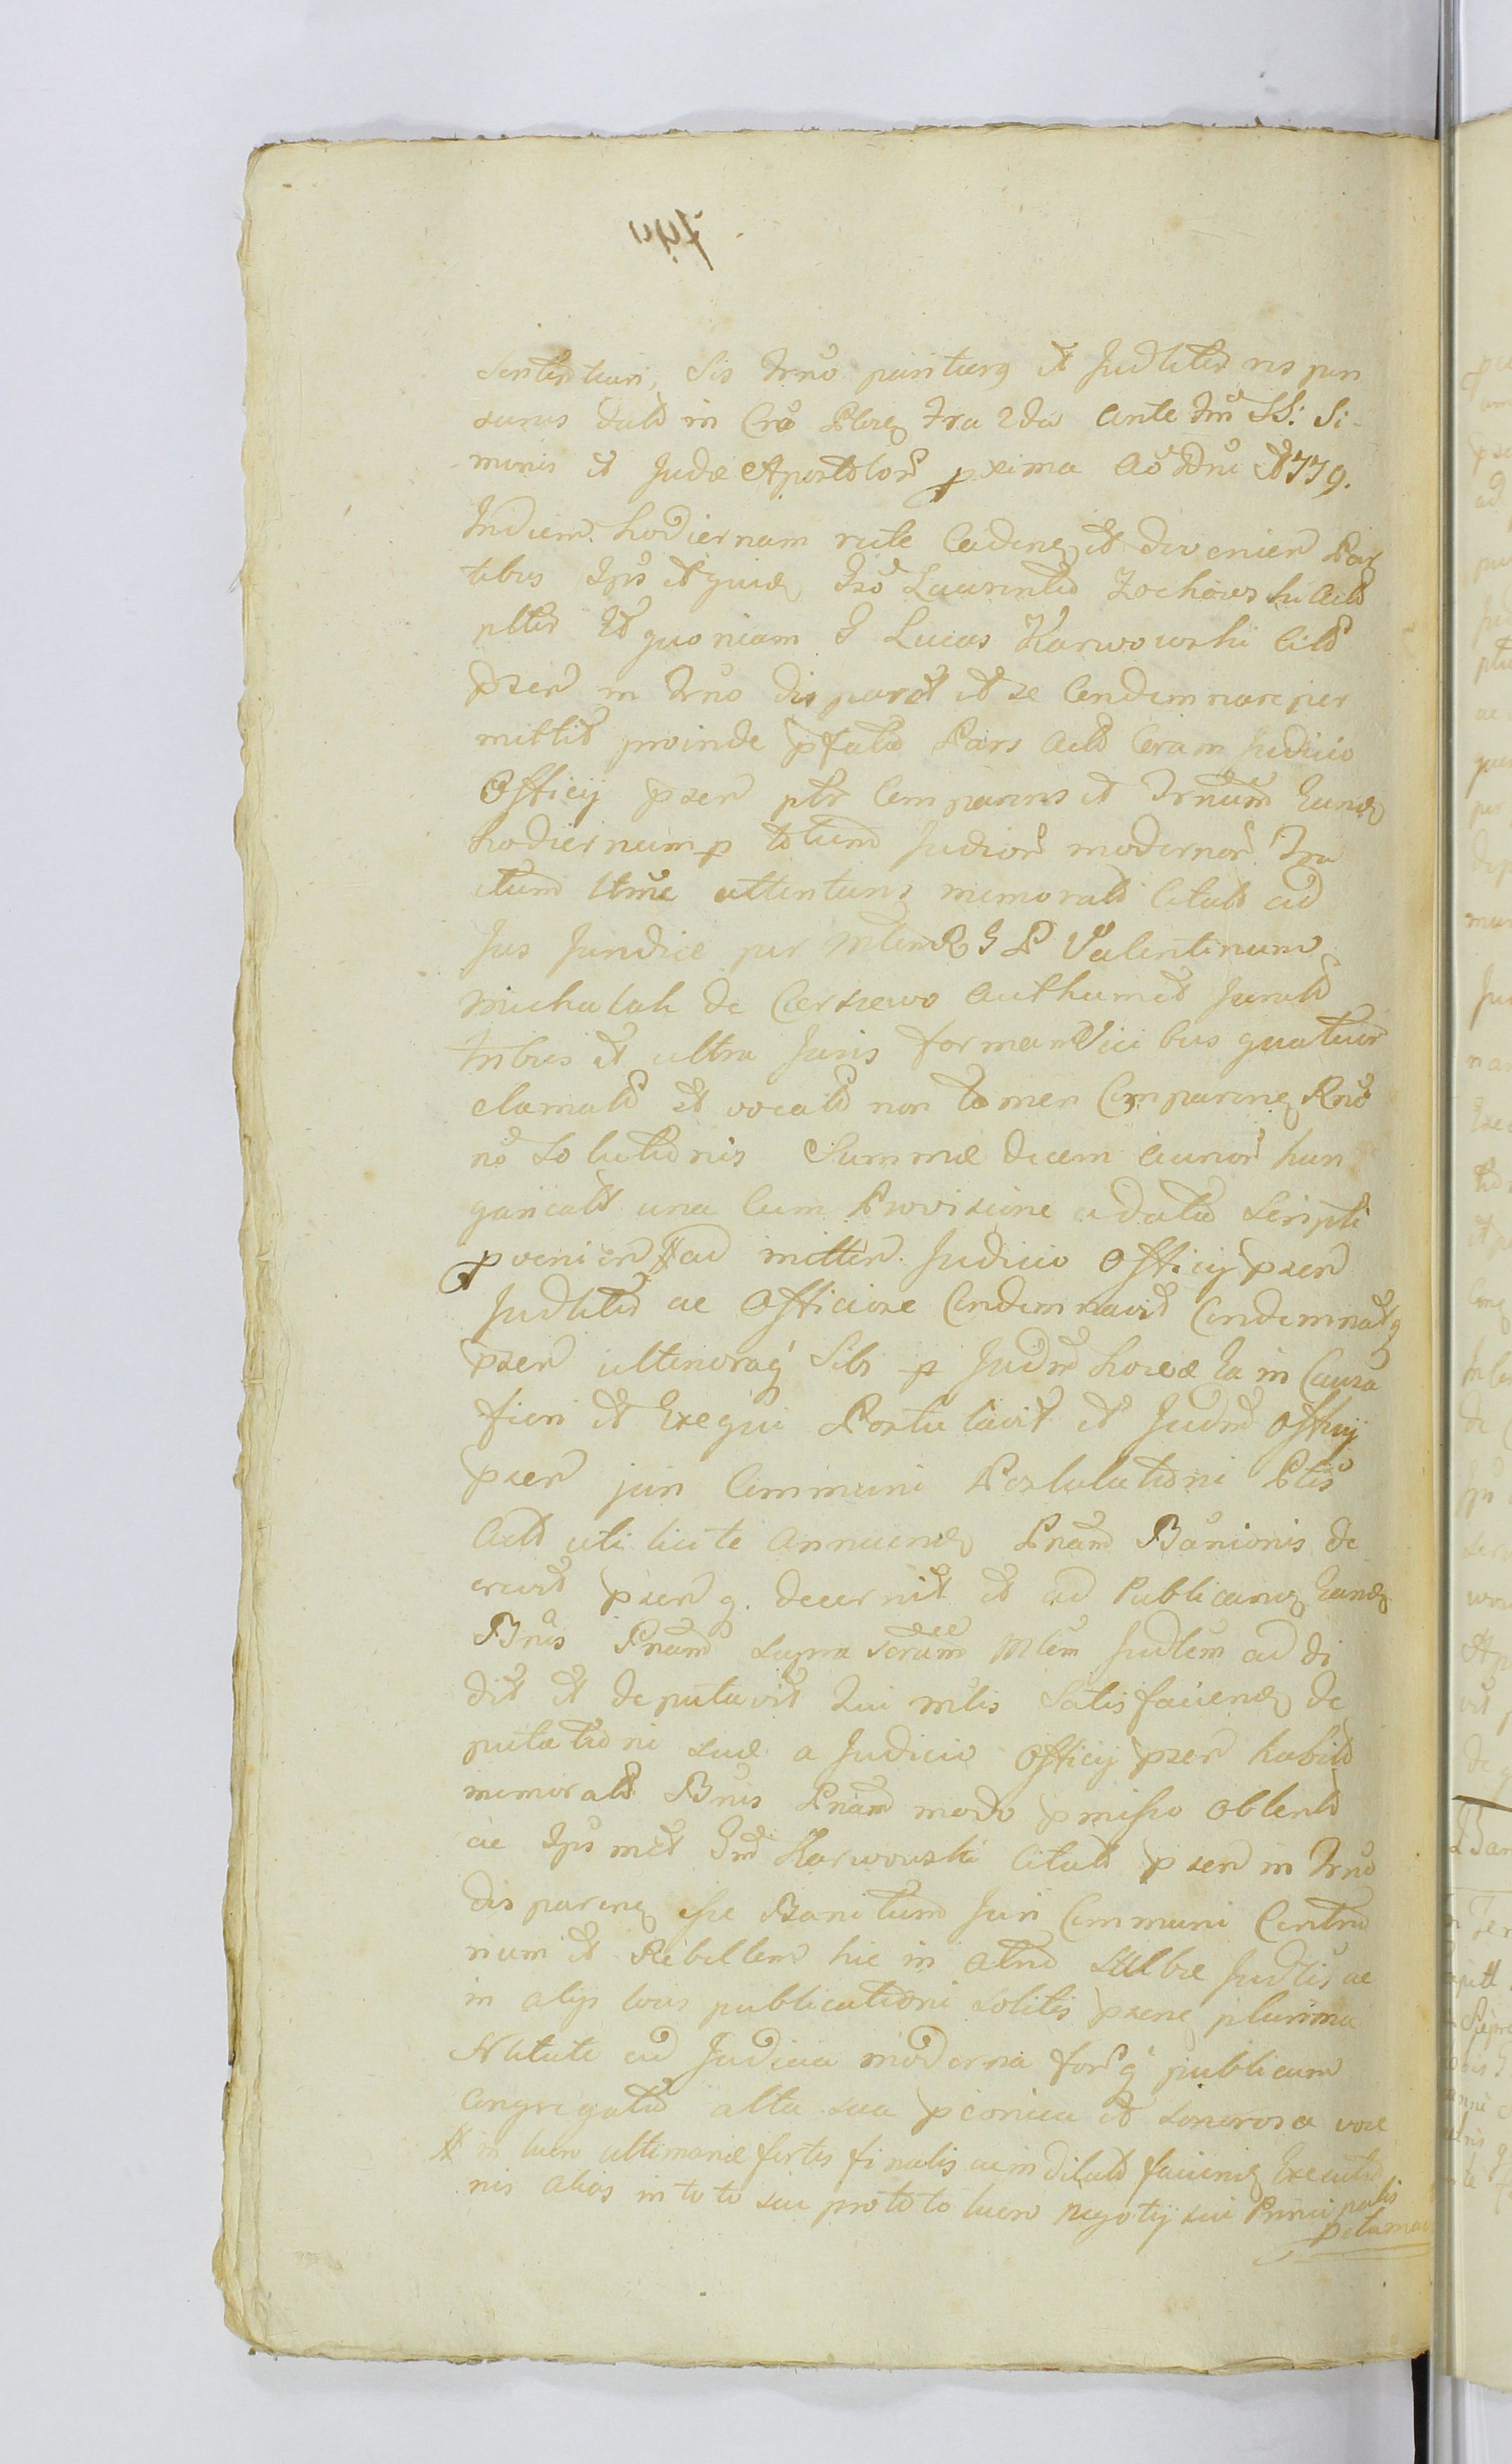 sententiari, Sis Trno pariturg et Judltr res pon
surus datt in Cro Ploreg Fra 2da Ante Fm SS: Si-
monis et Judæ Apostolor pxima Ao Dni 1779.
In diem hodiernam rite Cadeng et devenien Par
tibus Ips et quid Gso Laurentio Zochowski Act
plter Et quoniam G Lucas Karwowski Citt
pzen in Trno dis paret et se Condemnare per
mittit proinde pfata Pars Act Coram Judicio
Officij pzen pltr Comparens et Trnum hunc
hodiernum p totum Judior modernor Tra
ctum attentans memorati Citat ad
Jus Juridice per Mlem R G P Valentinum
Michalak de Cerszewo Authumet Jurat
tribus et ultra Juris formam Vici bus quatuor
clamat et vocat non tamen Compareng Rno
no Solutionis Summæ decem aureor hun
garicalt una Cum Provisione a data Scripti
pvenien ad mitten Judicio Officij pzen
Judltr ac Officiose Condemnavit Condemnatg
pzen ulteriorag Sibi p Judm hocce Ea in Causa
fieri et Exequi Postulavit et Judm Officij
pzen juri Communi Postulationi Ptis
Act uti licite Annuend Pnam Banionis de
crevit pzen q. decernit et ad Publicand Eand
Bnis Pnam supra Mlem Judlem ad di
dit et deputavit Qui mlis Satisfaciend de
putationi suæ a Judicio Officij pzen habit
memorat Bnis Pnam modo pmisso obtent
ac Ips met Gm Karwowski Citat pzen in Trno
dis pareng esse Banitum Juri Communi Contra
rium et Rebellem hic in Atrio Stubæ Judlis ac
in alijs locis publicationi solitis pzene plurima
Nbtate ad Judicia moderna forq publicum
Congregata alta sua pconica et sonorosa voce
# in lucro ultimariæ sortis finalis ac in dilat faciend Executio
nis alias in toto sui pro toto lucro Negotij sui Principalis